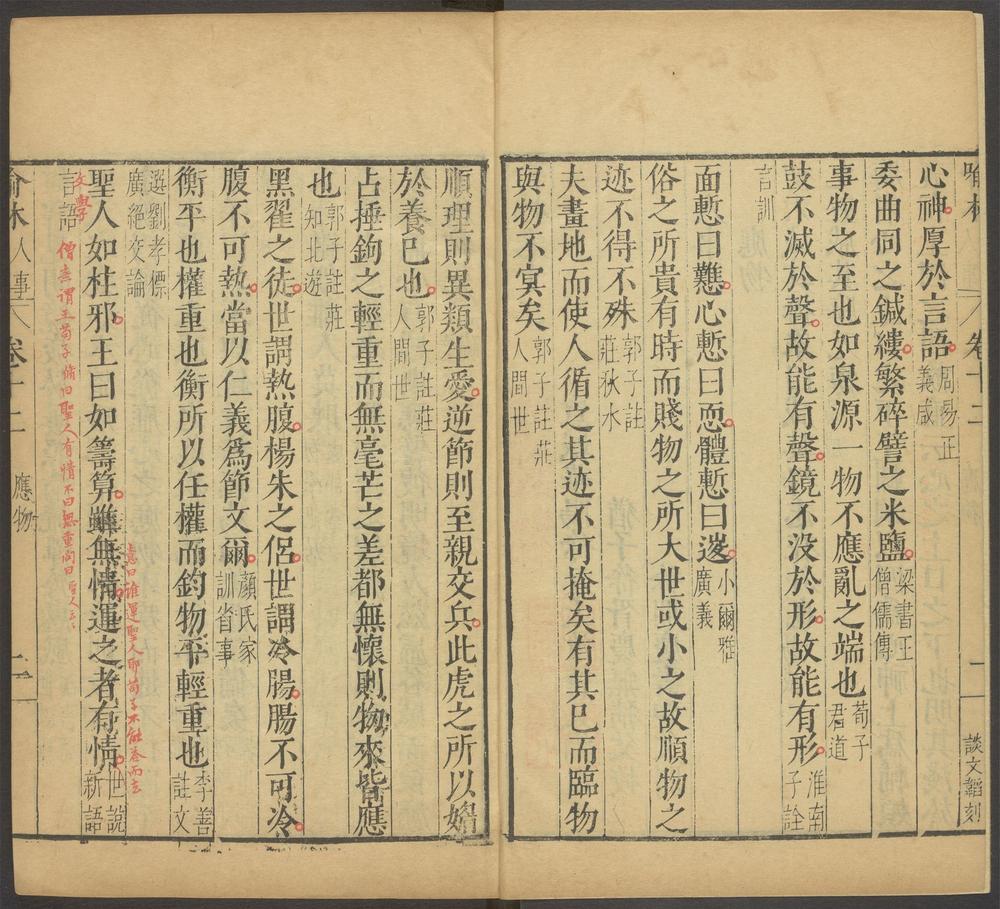 喻林 卷十二 二 談文韜刻
心神厚於言語周易正義咸
委曲同之鍼縷繁碎譬之米鹽梁書王僧儒傳
事物之至也如泉源一物不應亂之端也荀子君道
鼓不滅於聲故能有聲鏡不没於形故能有形淮南子詮
言訓
面慙曰戁心慙曰恧體慙曰逡小爾雅廣義
俗之所貴有時而賤物之所大世或小之故順物之
迹不得不殊郭子註莊秋水
夫畫地而使人循之其迹不可掩矣有其已而臨物
與物不㝠矣郭子註莊人間世
順理則異類生愛逆節則至親交兵此虎之所以媚
於養已也郭子註莊人間世
占捶鉤之輕重而無毫芒之差都無懷則物來皆應
也郭子註莊知北遊
黑翟之徒世謂熱腹楊朱之侶世謂冷腸腸不可冷
腹不可熱當以仁義爲節文爾顏氏家訓省事
衡平也權重也衡所以任權而鈞物平輕重也李善註文
選劉孝標廣絶交論
聖人如柱邪王曰如籌算雖無情運之者有情世說新語
意曰誰運聖人邪荀子不能荅而去
言語
文學
僧意謂王荀子脩曰聖人有情不曰無重問曰聖人云云
喻林 人事 卷十二 應物 二